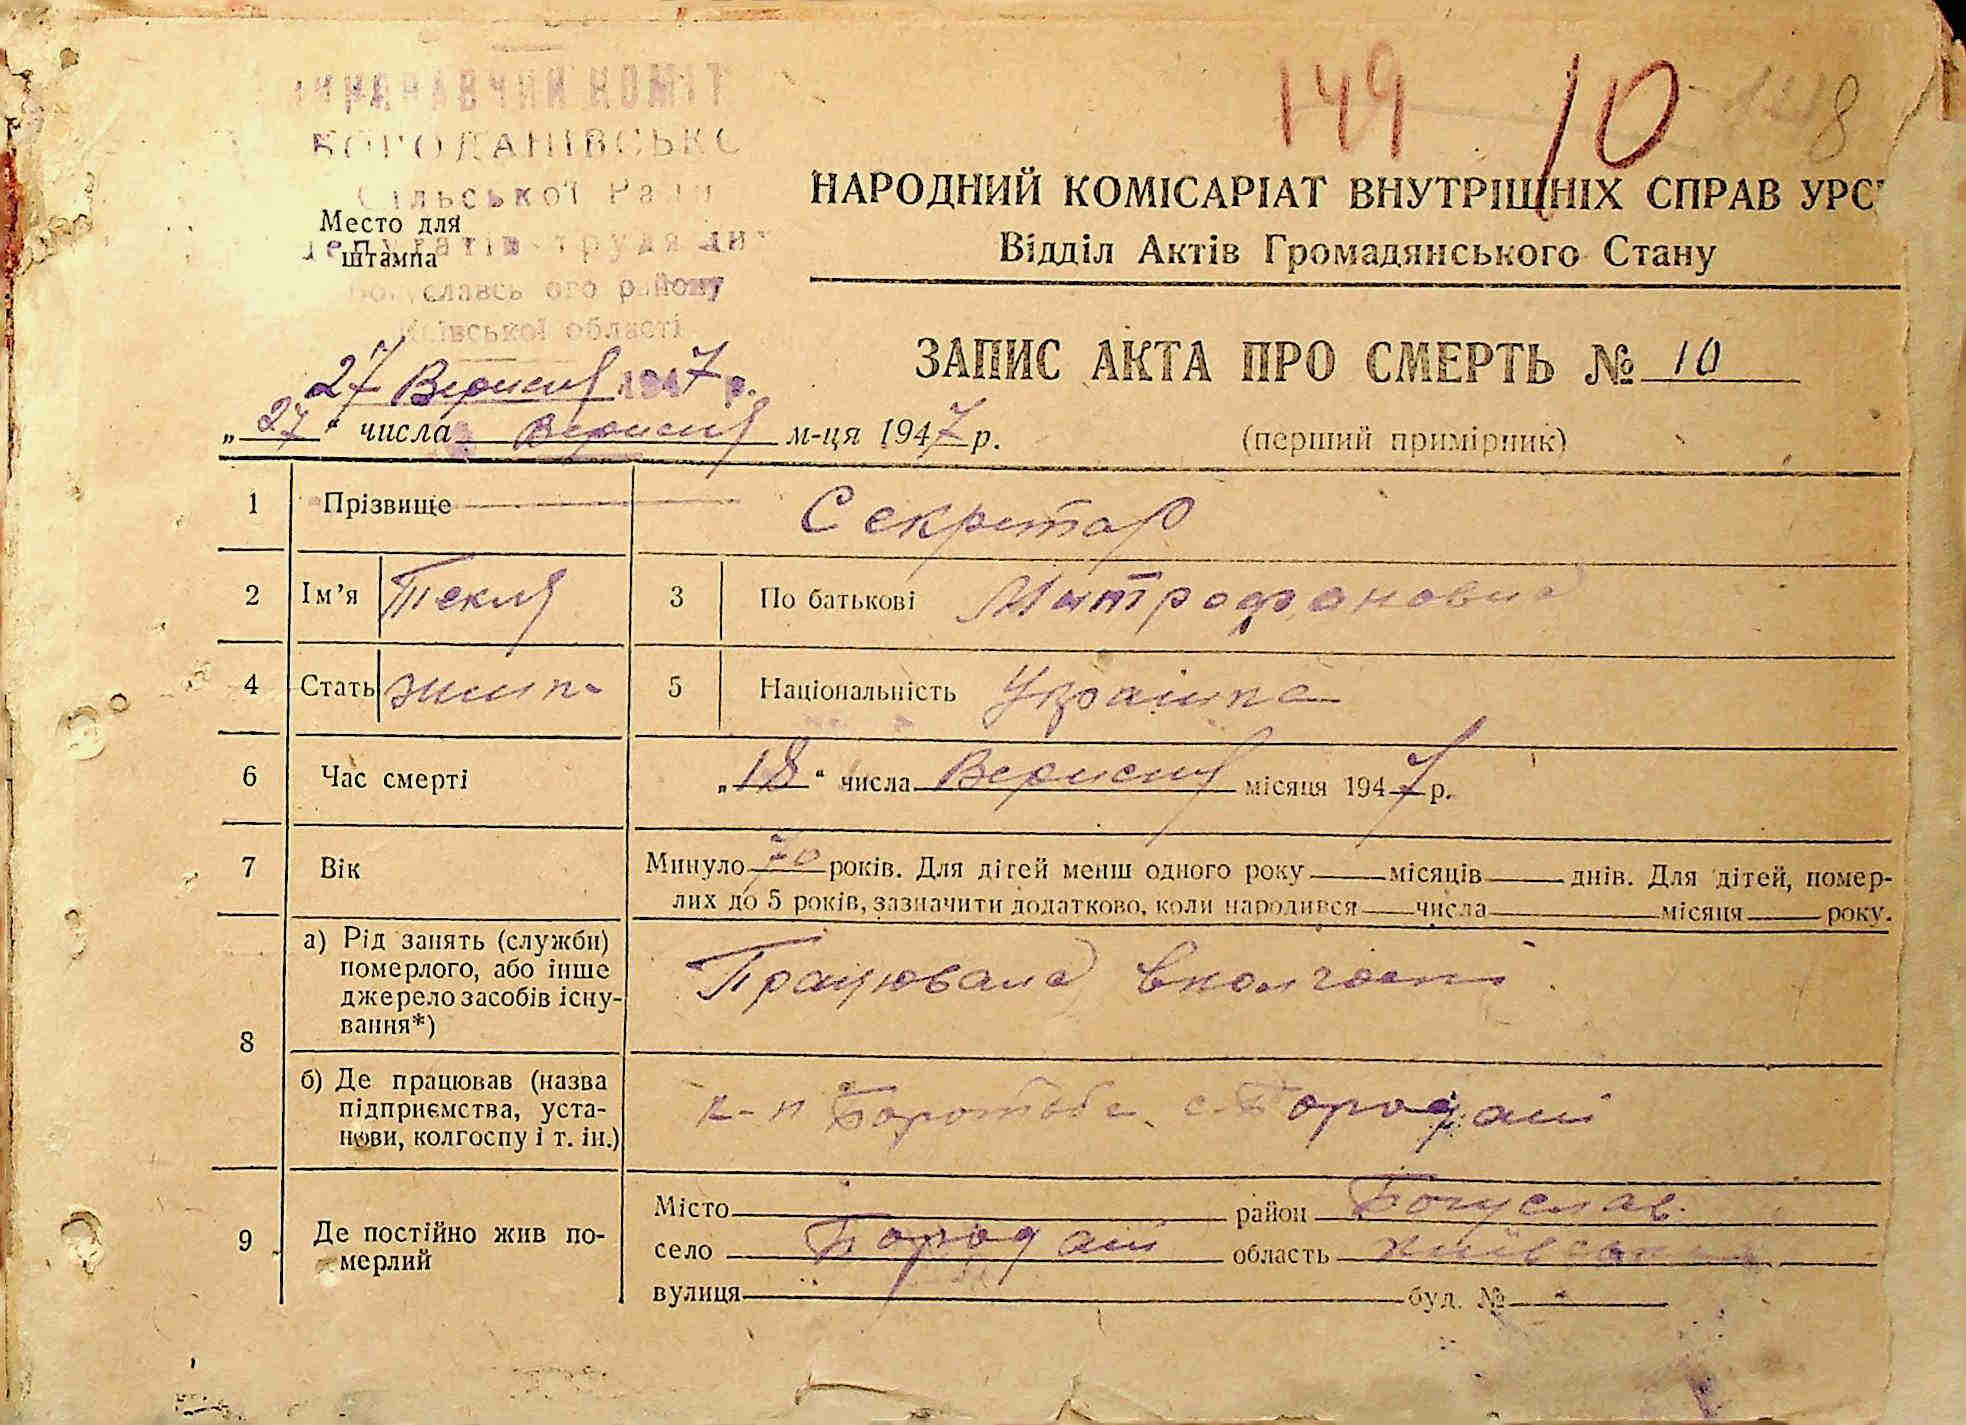 149 10
КОМІТ
Сільської Ради
Депутатів трудящих
Богуславського району
Київської області
Место для
штампа
27 Вересня 1947 р.
НАРОДНИЙ КОМІСАРІАТ ВНУТРІШНІХ СПРАВ УРС
Відділ Актів Громадянського Стану
ЗАПИС АКТА ПРО СМЕРТЬ № 10
„27“ числа Вересня м-ця 1947 р. (перший примірник)
1 Прізвище Секретар
2 Ім'я Текля 3 По батькові Митрофановна
4 Стать 5 Національність Українка
6 Час смерті „18“ числа Вересня місяця 1947 р.
7 Вік Минуло 70 років. Для дітей менш одного року місяців днів. Для дітей, помер-
лих до 5 років, зазначити додатково, коли народився числа місяця року.
8 а) Рід занять (служби)
померлого, або інше
джерело засобів існу-
вання*)
Працювала в колгоспі
б) Де працював (назва
підприємства, уста-
нови, колгоспу і т. ін.)
к-п Боротьба с.
9 Де постійно жив по-
мерлий
Місто район Богуслав.
село область Київська
вулиця буд. № -